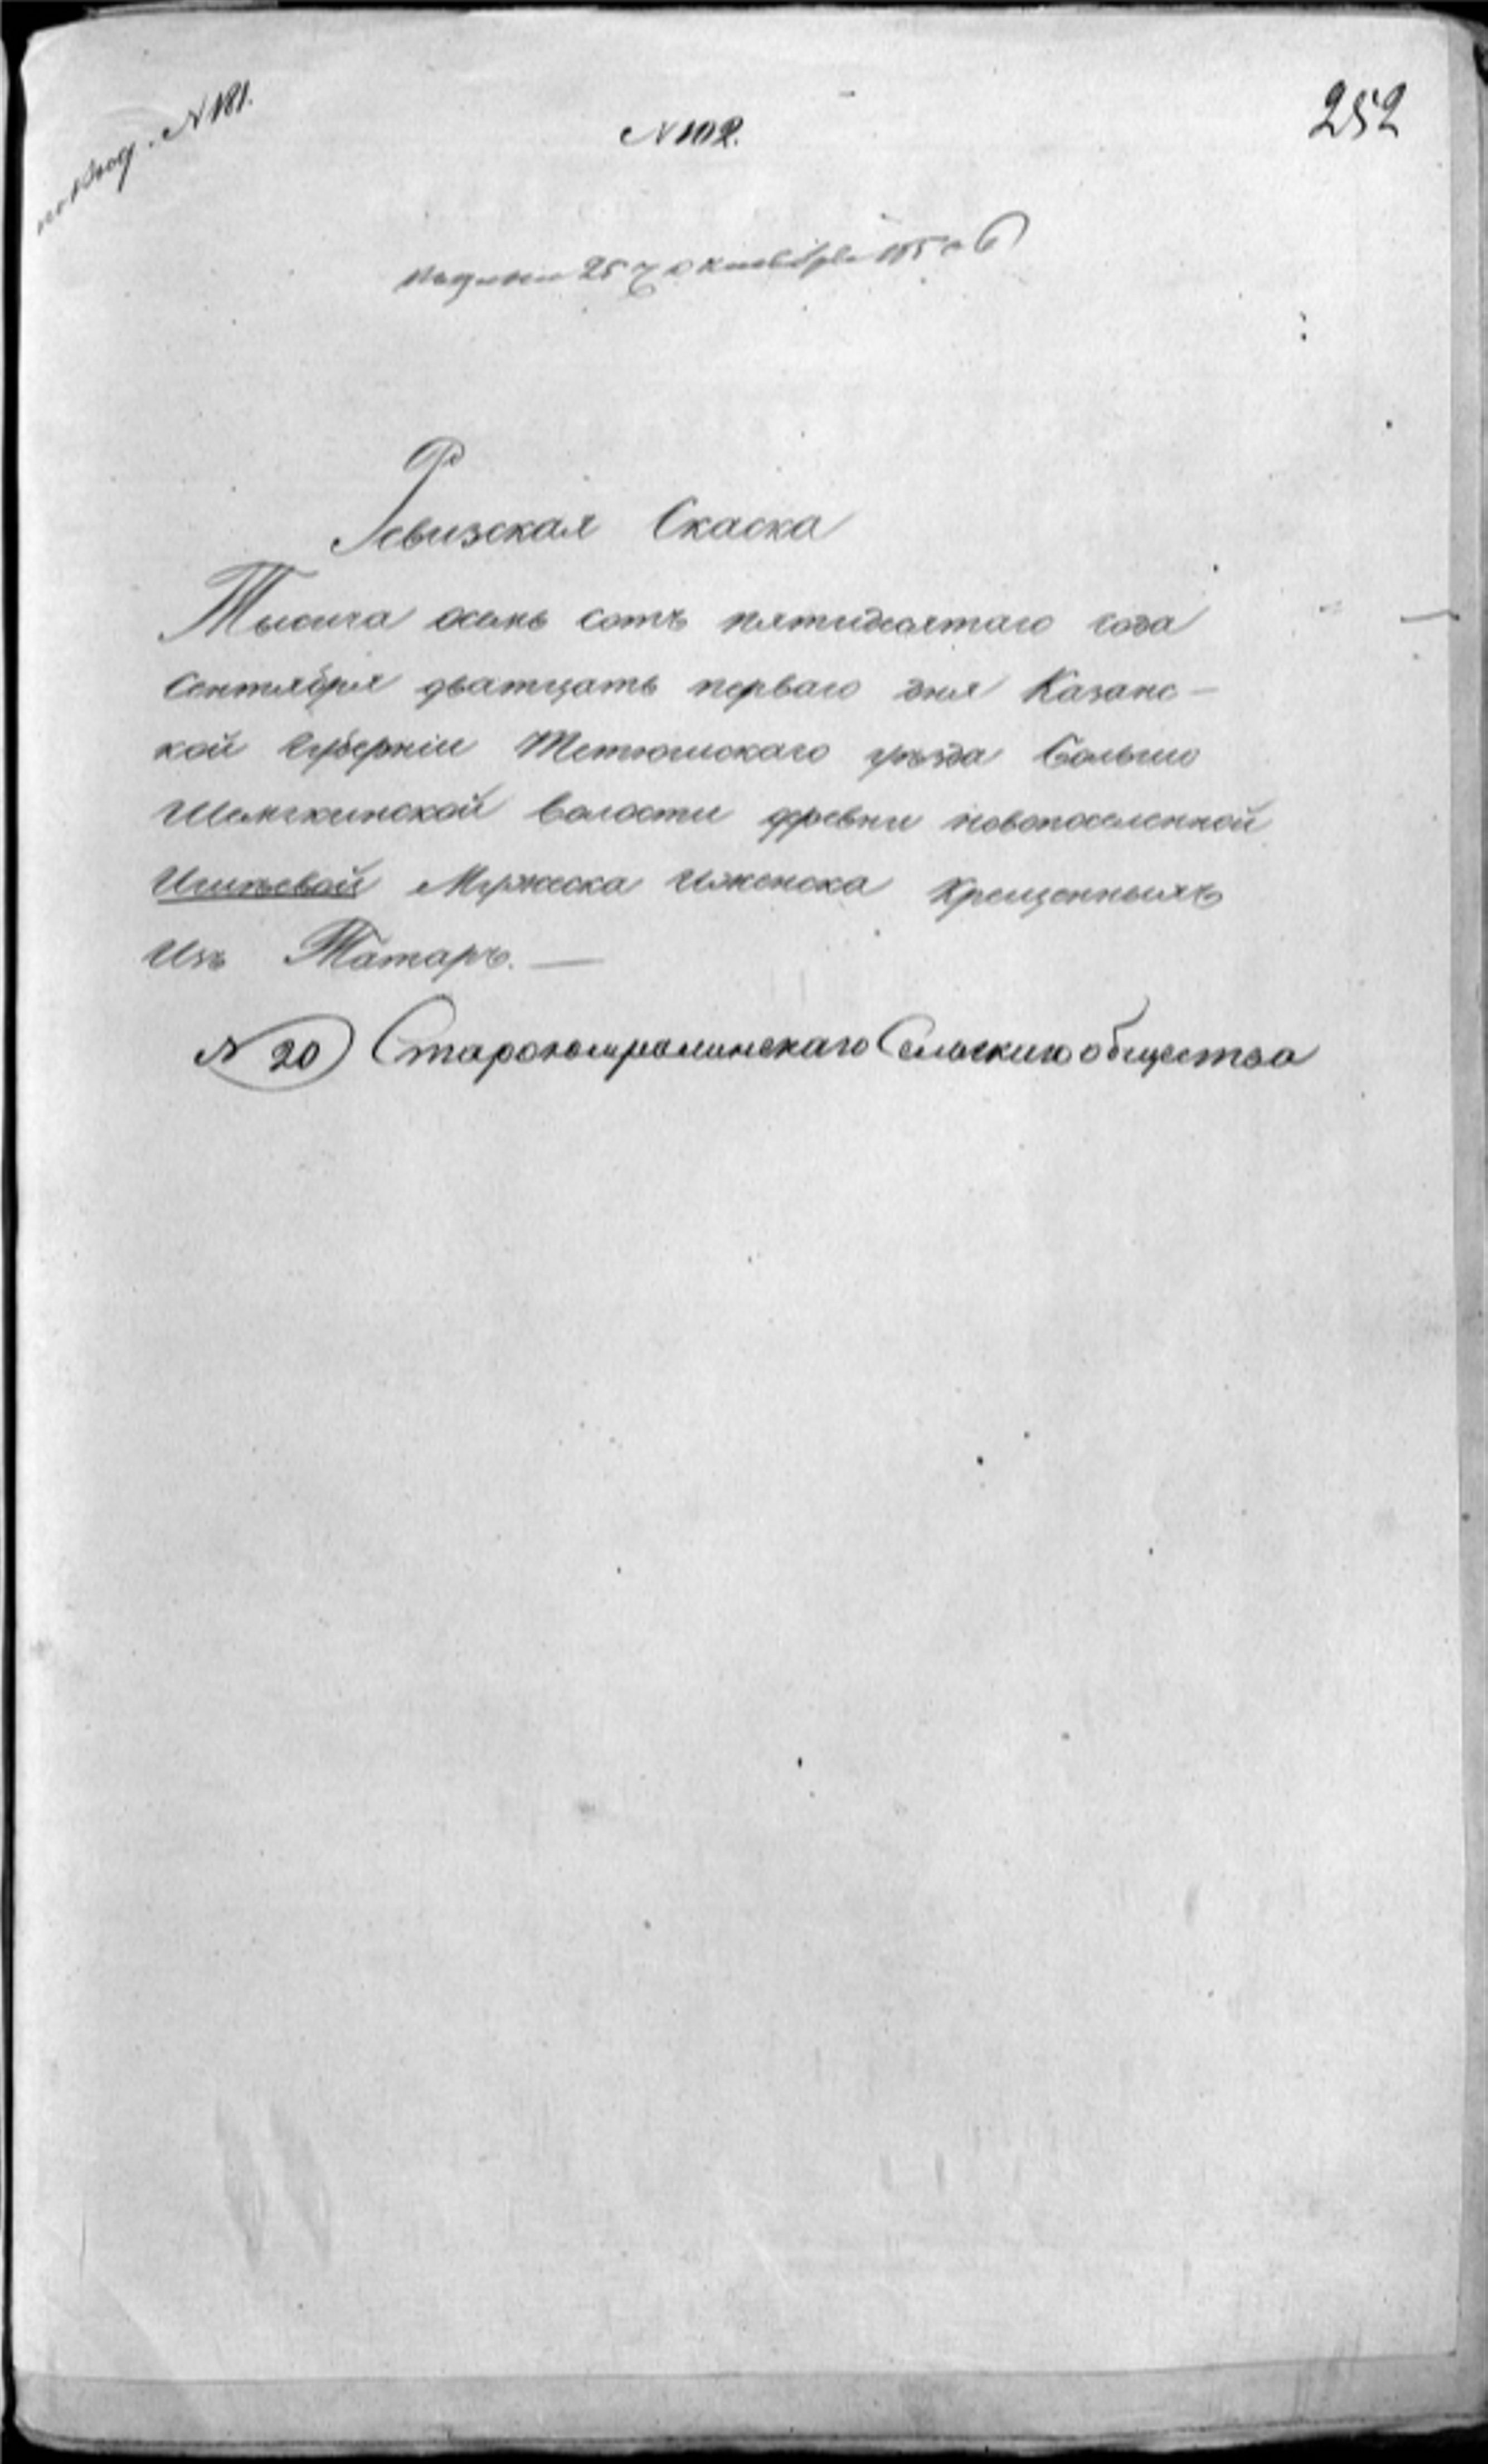 по вход. N 181.
N 102.
252
Подана 25 октября 1850
Ревизская Скаска
Тысяча осемь сотъ пятидесятаго года
Сентября дватцать перваго дня Казанс-
кой Губерніи Тетюшскаго уѣзда Больше
Шемякинской волости деревни новопоселенной
Ишлѣевой Мужеска иженска Крещенныхъ
Изъ Татаръ. —
N 20 Сельскаго общества